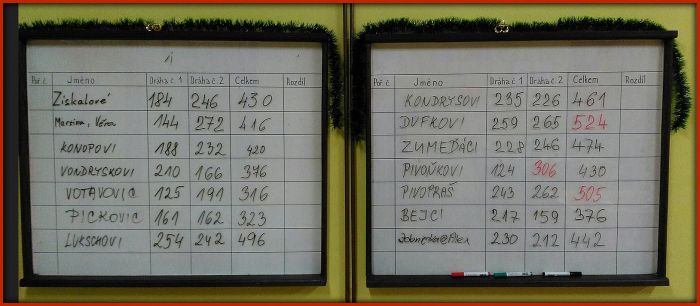 Poř. č. Jméno Dráha č. 1 Dráha č. 2 Celkem Rozdíl
Získalové 184 246 430
Martina, Věra 144 272 416
KONOPOVI 188 232 420
VONDRYSKOVI 210 166 376
VOTAVOVIC 125 191 316
PICKOVIC 161 162 323
LUKSCHOVI 254 242 496
Poř. č. Jméno Dráha č. 1 Dráha č. 2 Celkem Rozdíl
KONDRYSOVI 235 226 461
DUFKOVI 259 265 524
ZUMEĎÁCI 228 246 474
PIVOŇKOVI 124 306 430
PIVOPRAŠ 243 262 505
BEJCI 217 159 376
230 212 442